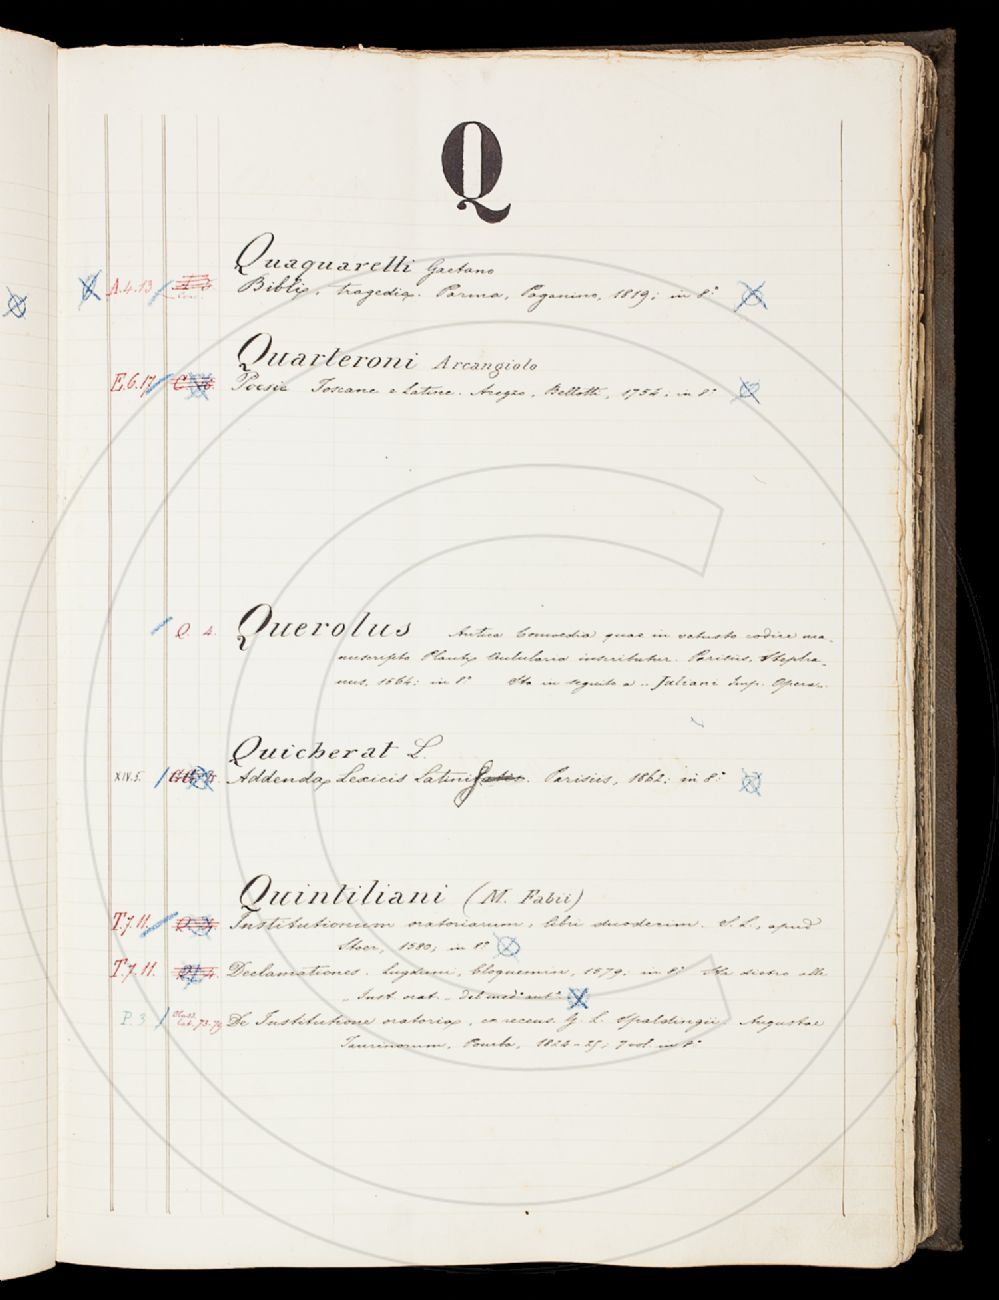 Q
Quaquarelli Gaetano
A.4.13 Biblis, tragedia. Parma, Paganino, 1819; in 8.°
Quarteroni Arcangiolo
E.6.17 Poesie Toscane e Latine. Arezzo, Bellotti, 1754; in 8°
Q. 4. Querolus Antiqua Comoedia quae in vetusto codice ma-
nuscripto Plauti Aulularia inscribitur. Parisiis, Stepha-
nus, 1564; in 8.° Sta in seguito a „ Juliani Imp. Opera „.
Quicherat L.
XIV.5. Addenda Lexicis Latinis. Parisiis, 1862; in 8.°
Quintiliani (M. Fabii)
T.7.11. Institutionum oratoriarum, libri duodecim. S. L., apud
Stoer, 1580; in 8.°
T.7.11. Declamationes. Lugduni, 1579, in 8.° Sta dietro alle
„ Inst. orat. „ del med.° aut.°
P. 3. Class. Lat. 73-79 De Institutione oratoria, ex recens. G. L. Spaldingii. Augustae
Taurinorum, Pomba, 1824-25; 7 vol. in 8.°